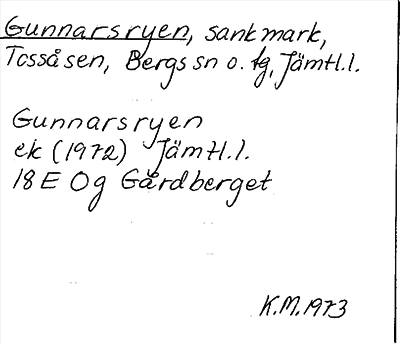 Gunnarsryen, sankmark,
Tossåsen, Bergs sn o. tg, Jämtl.l.
Gunnarsryen
ek (1972) Jämtl.l.
18 E 0g Gårdberget
K.M. 1973